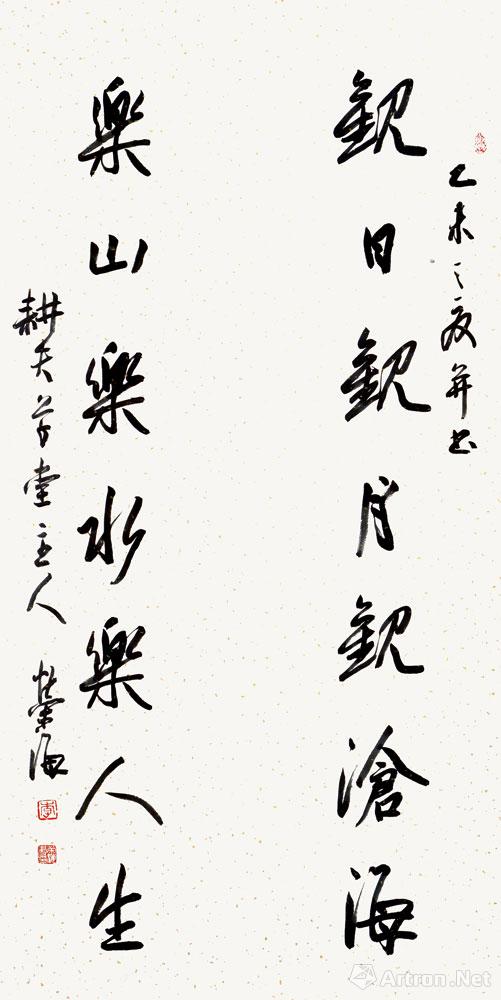 乙未之夏并书
觀日觀月觀滄海
樂山樂水樂人生
耕天草堂主人 榮海
Artron.Net